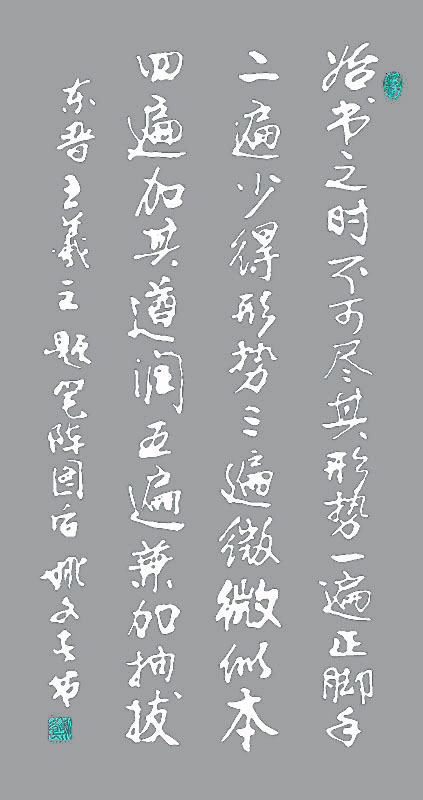 始书之时不可尽其形势一遍正脚手
二遍少得形势三遍微微似本
四遍加其遒润五遍兼加抽拔
东晋王羲之题笔阵图后 姚文书